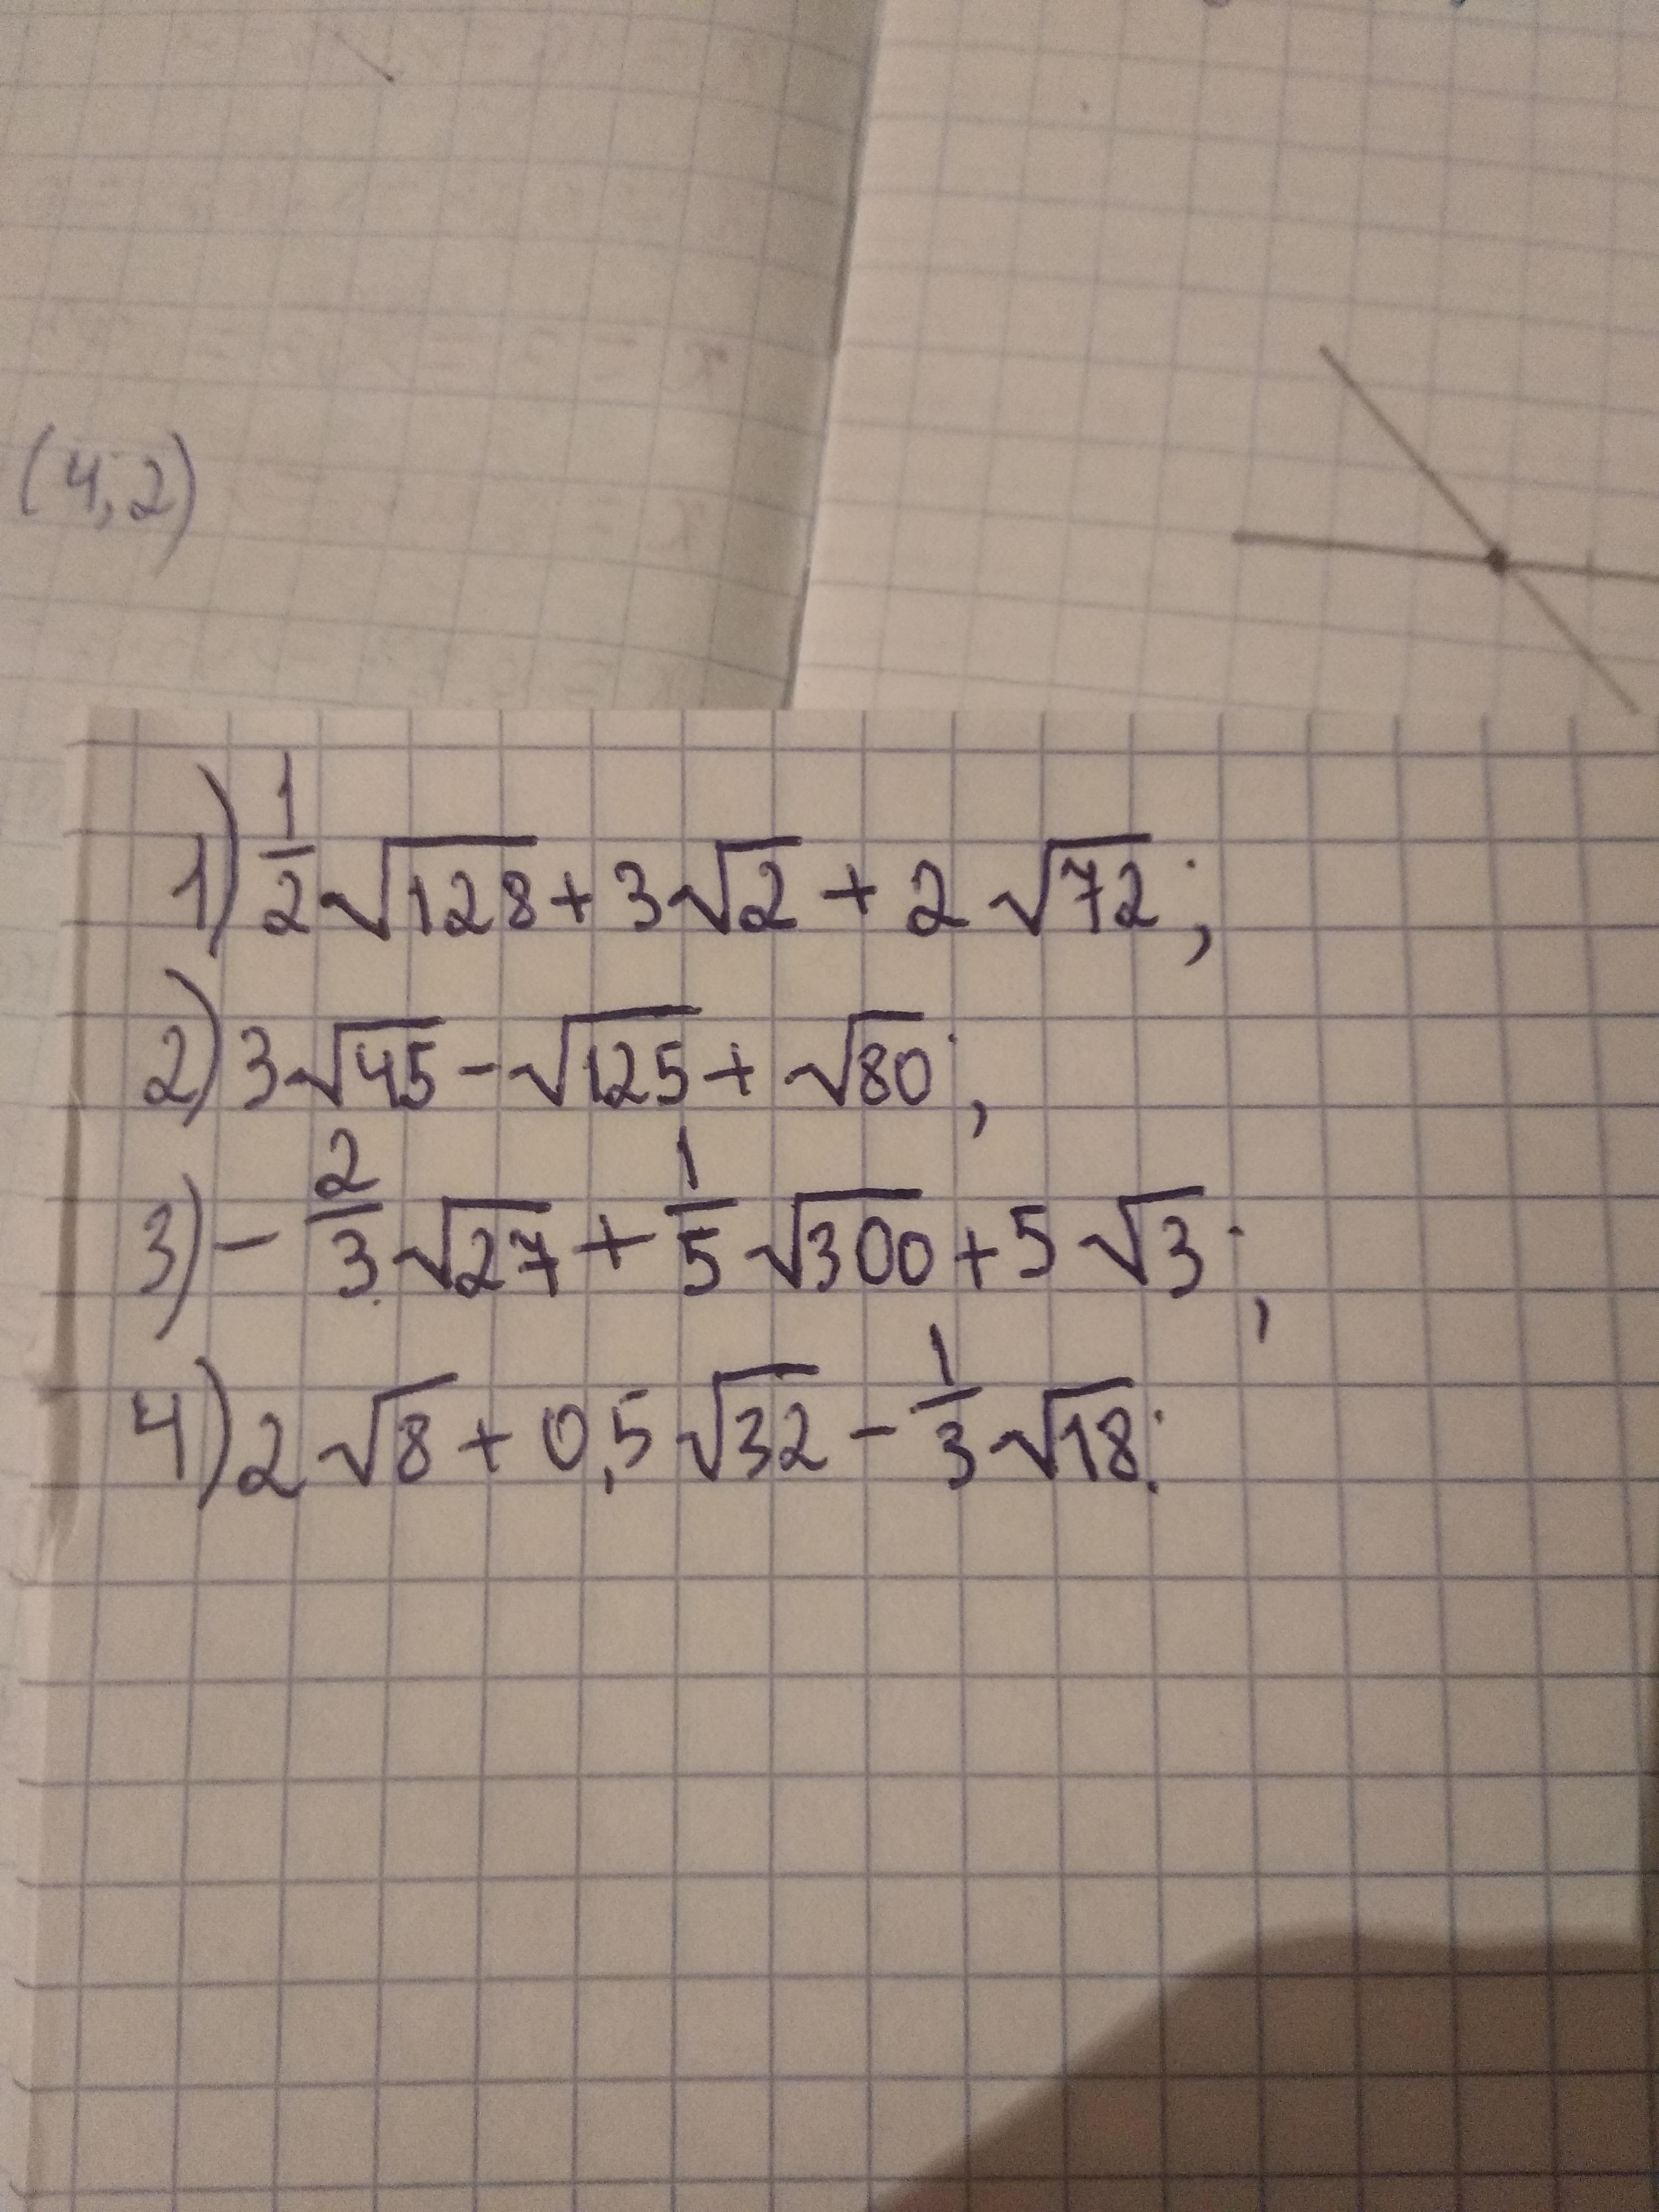 (4,2)
1) 1/2 √128 + 3√2 + 2√72;
2) 3√45 - √125 + √80;
3) - 2/3 √27 + 1/5 √300 + 5√3;
4) 2√8 + 0,5√32 - 1/3 √18: